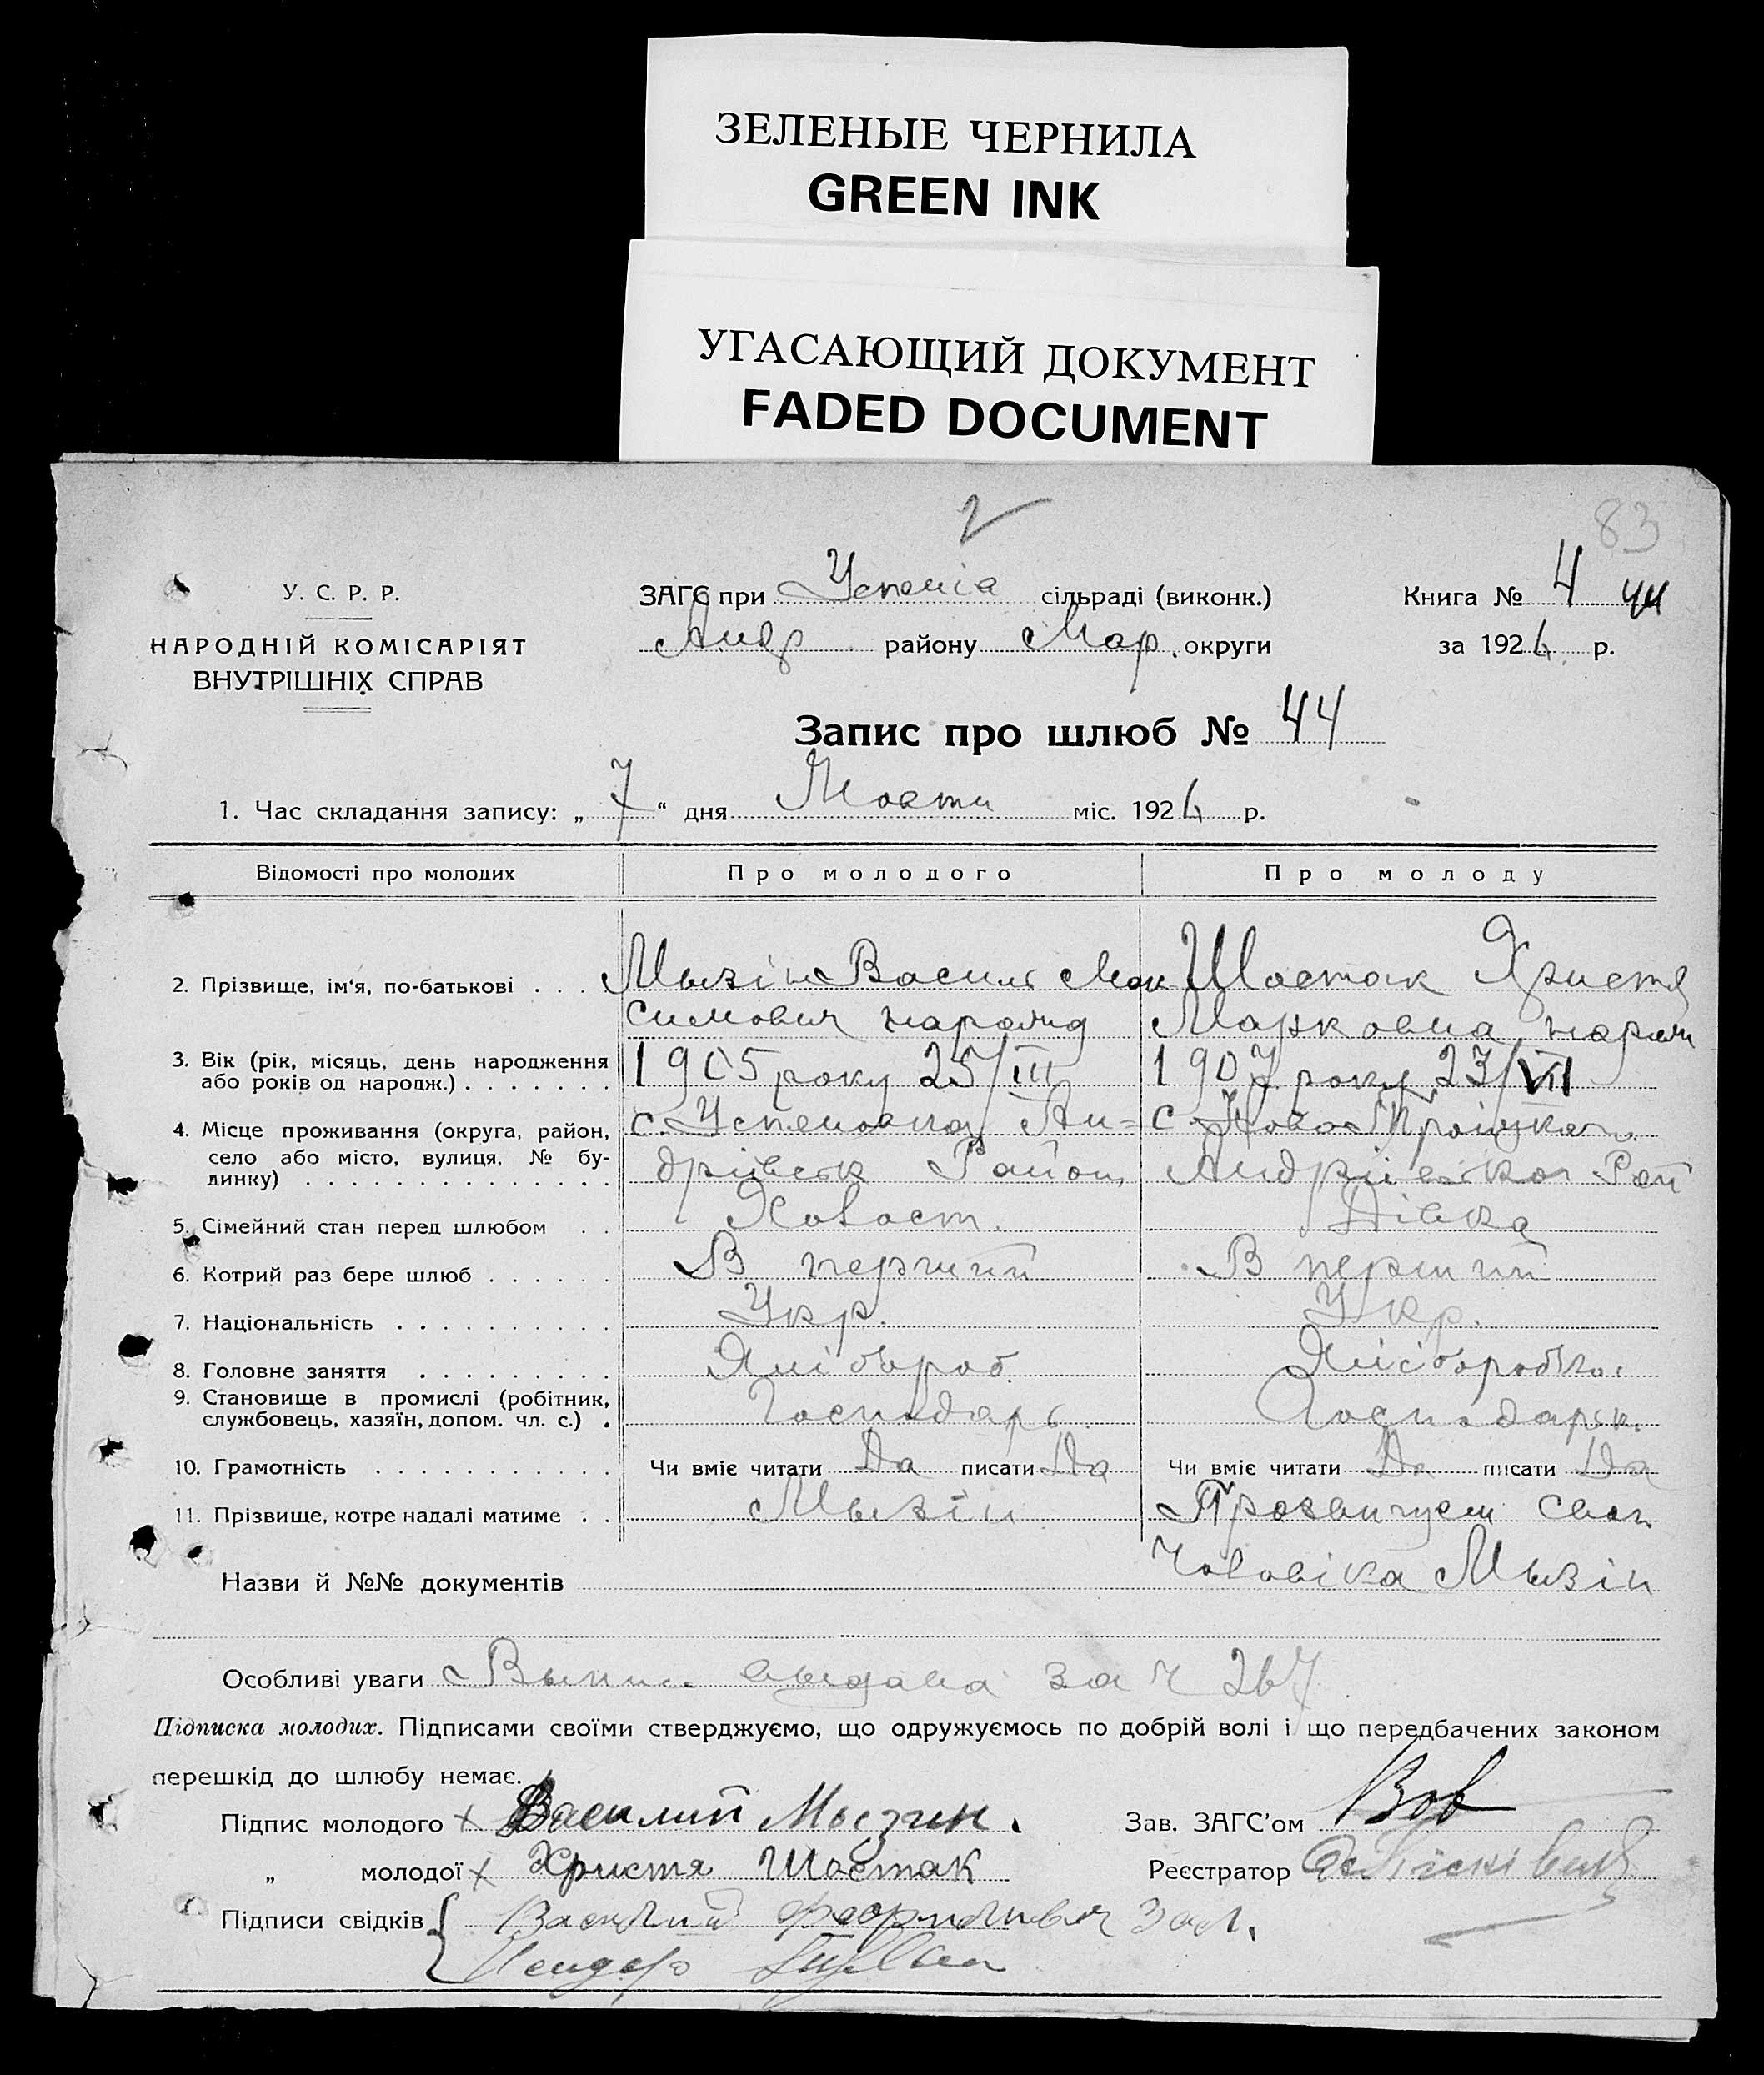 ЗЕЛЕНЫЕ ЧЕРНИЛА
GREEN INK
УГАСАЮЩИЙ ДОКУМЕНТ
FADED DOCUMENT
83
У. С. Р. Р.
НАРОДНІЙ КОМІСАРІЯТ
ВНУТРІШНІХ СПРАВ
ЗАГС при Успеніа сільраді (виконк.)
Андр району Мар. округи
Книга № 4 44
за 192 р.
Запис про шлюб № 44
1. Час складання запису: „ 7 “ дня міс. 192 р.
Відомості про молодих Про молодого Про молоду
2. Прізвище, ім'я, по-батькові . . . . Мызін Василь Мак Шостак Христя
симович народ Марковна народ
3. Вік (рік, місяць, день народження 1905 року 25/III 1907 року 23/VII
або років од народж.) . . . . . . .
4. Місце проживання (округа, район, с. Успеновка Ан= с. Ново
село або місто, вулиця, № бу- дрівськ Район Андрієвско Рай
динку) . . . . . . . . . . . . . .
5. Сімейний стан перед шлюбом . . Холост. Дівка
6. Котрий раз бере шлюб . . . . . . В перший В перший
7. Національність . . . . . . . . . . Укр. Укр.
8. Головне заняття . . . . . . . . .
9. Становище в промислі (робітник, Господарь
службовець, хазяїн, допом. чл. с.) .
10. Грамотність . . . . . . . . . . . Чи вміє читати Да писати Да Чи вміє читати Да писати Да
11. Прізвище, котре надалі матиме . . Мызін Прозвищем свого
Чоловіка Мызін
Назви й №№ документів
Особливі уваги Выпис выдана за 267
Підписка молодих. Підписами своїми стверджуємо, що одружуємось по добрій волі і що передбачених законом
перешкід до шлюбу немає.
Підпис молодого х Василий Мызин. Зав. ЗАГС'ом
„ молодої х Христя Шостак Реєстратор
Підписи свідків { Василий